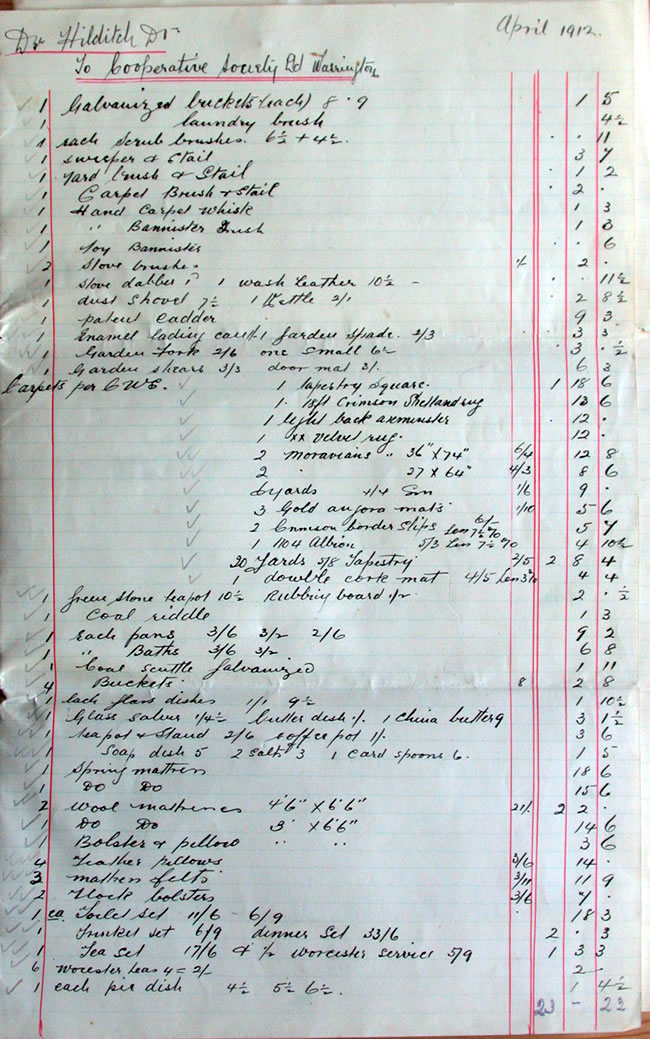 Dr Hilditch Dr April 1912.
To Cooperative Society Ld Warrington
1 Galvanized buckets (each) 8 . 9 1 5
1 laundry brush 4½
1 each Scrub brushes. 6½ + 4½ . . 11
1 sweeper & Stail 3 7
1 Yard brush & Stail . 1 2
1 Carpet Brush & Stail . 2 .
1 Hand Carpet Whisk 1 3
1 " Bannister Brush 1 3
1 Toy Bannister . . 6
2 Stove brushes 1/. . 2 .
1 Stove dabber 1 wash leather 10½ . . 11½
1 dust shovel 7½ 1 Kettle 2/1 . 2 8½
1 patent Ladder 9 3
1 Enamel lading can 1 Garden Spade. 2/3 . 3 3
1 Garden Fork 2/6 one small 6½ . 3 . ½
1 Garden shears 3/3 door mat 3/. 6 3
Carpets per C.W.S.
1 Tapestry Square. 1 18 6
1. 18ft Crimson Shetland rug 13 6
1 light back axminster . 12 .
1 xx Velvet rug. 12 .
2 Moravians .. 36" x 74" 6/4 12 8
2 . 27 x 64" 4/3 8 6
6 yards 4/4 1/6 9 .
3 Gold angora mats 1/10 5 6
2 Crimson border Slips 6/- Less 7½ % 5 7
1 1104 Albion 5/3 Less 7½ % 4 10½
20 Yards 5/8 Tapestry 2/5 2 8 4
1 double cork mat 4/5 Less % 4 4
1 Green Stone teapot 10½ Rubbing board 1/2 2 . ½
1 Coal riddle 1 3
1 Each pans 3/6 3/2 2/6 9 2
1 " Baths 3/6 3/2 6 8
1 Coal Scuttle Galvanized 1 11
4 Buckets 8 2 8
1 each glass dishes 1/1 9½ 1 10½
1 Glass Salver 1/4½ butter dish 1/. 1 China butter 9 3 1½
1 teapot & Stand 2/6 coffee pot 1/. 3 6
1 Soap dish 5 2 Salts 3 1 Card spoons 6. 1 5
1 Spring mattress 18 6
1 Do Do 15 6
2 Wool mattresses 4'6" x 6'6" 21/. 2 2 .
1 Do Do 3' x 6'6" 14 6
1 Bolster & pillow " " 3 6
4 Feather pillows 3/6 14 .
3 mattress felts 3/11 11 9
2 Flock bolsters 3/6 7 .
1 ea Toilet Set 11/6 - 6/9 . 18 3
1 Trinket set 6/9 dinner set 33/6 2 . 3
1 Tea Set 17/6 & ½ Worcester Service 5/9 1 3 3
6 Worcester teas 4 = 2/- 2 .
1 each pie dish 4½ 5½ 6½. 1 4½
23 - 23